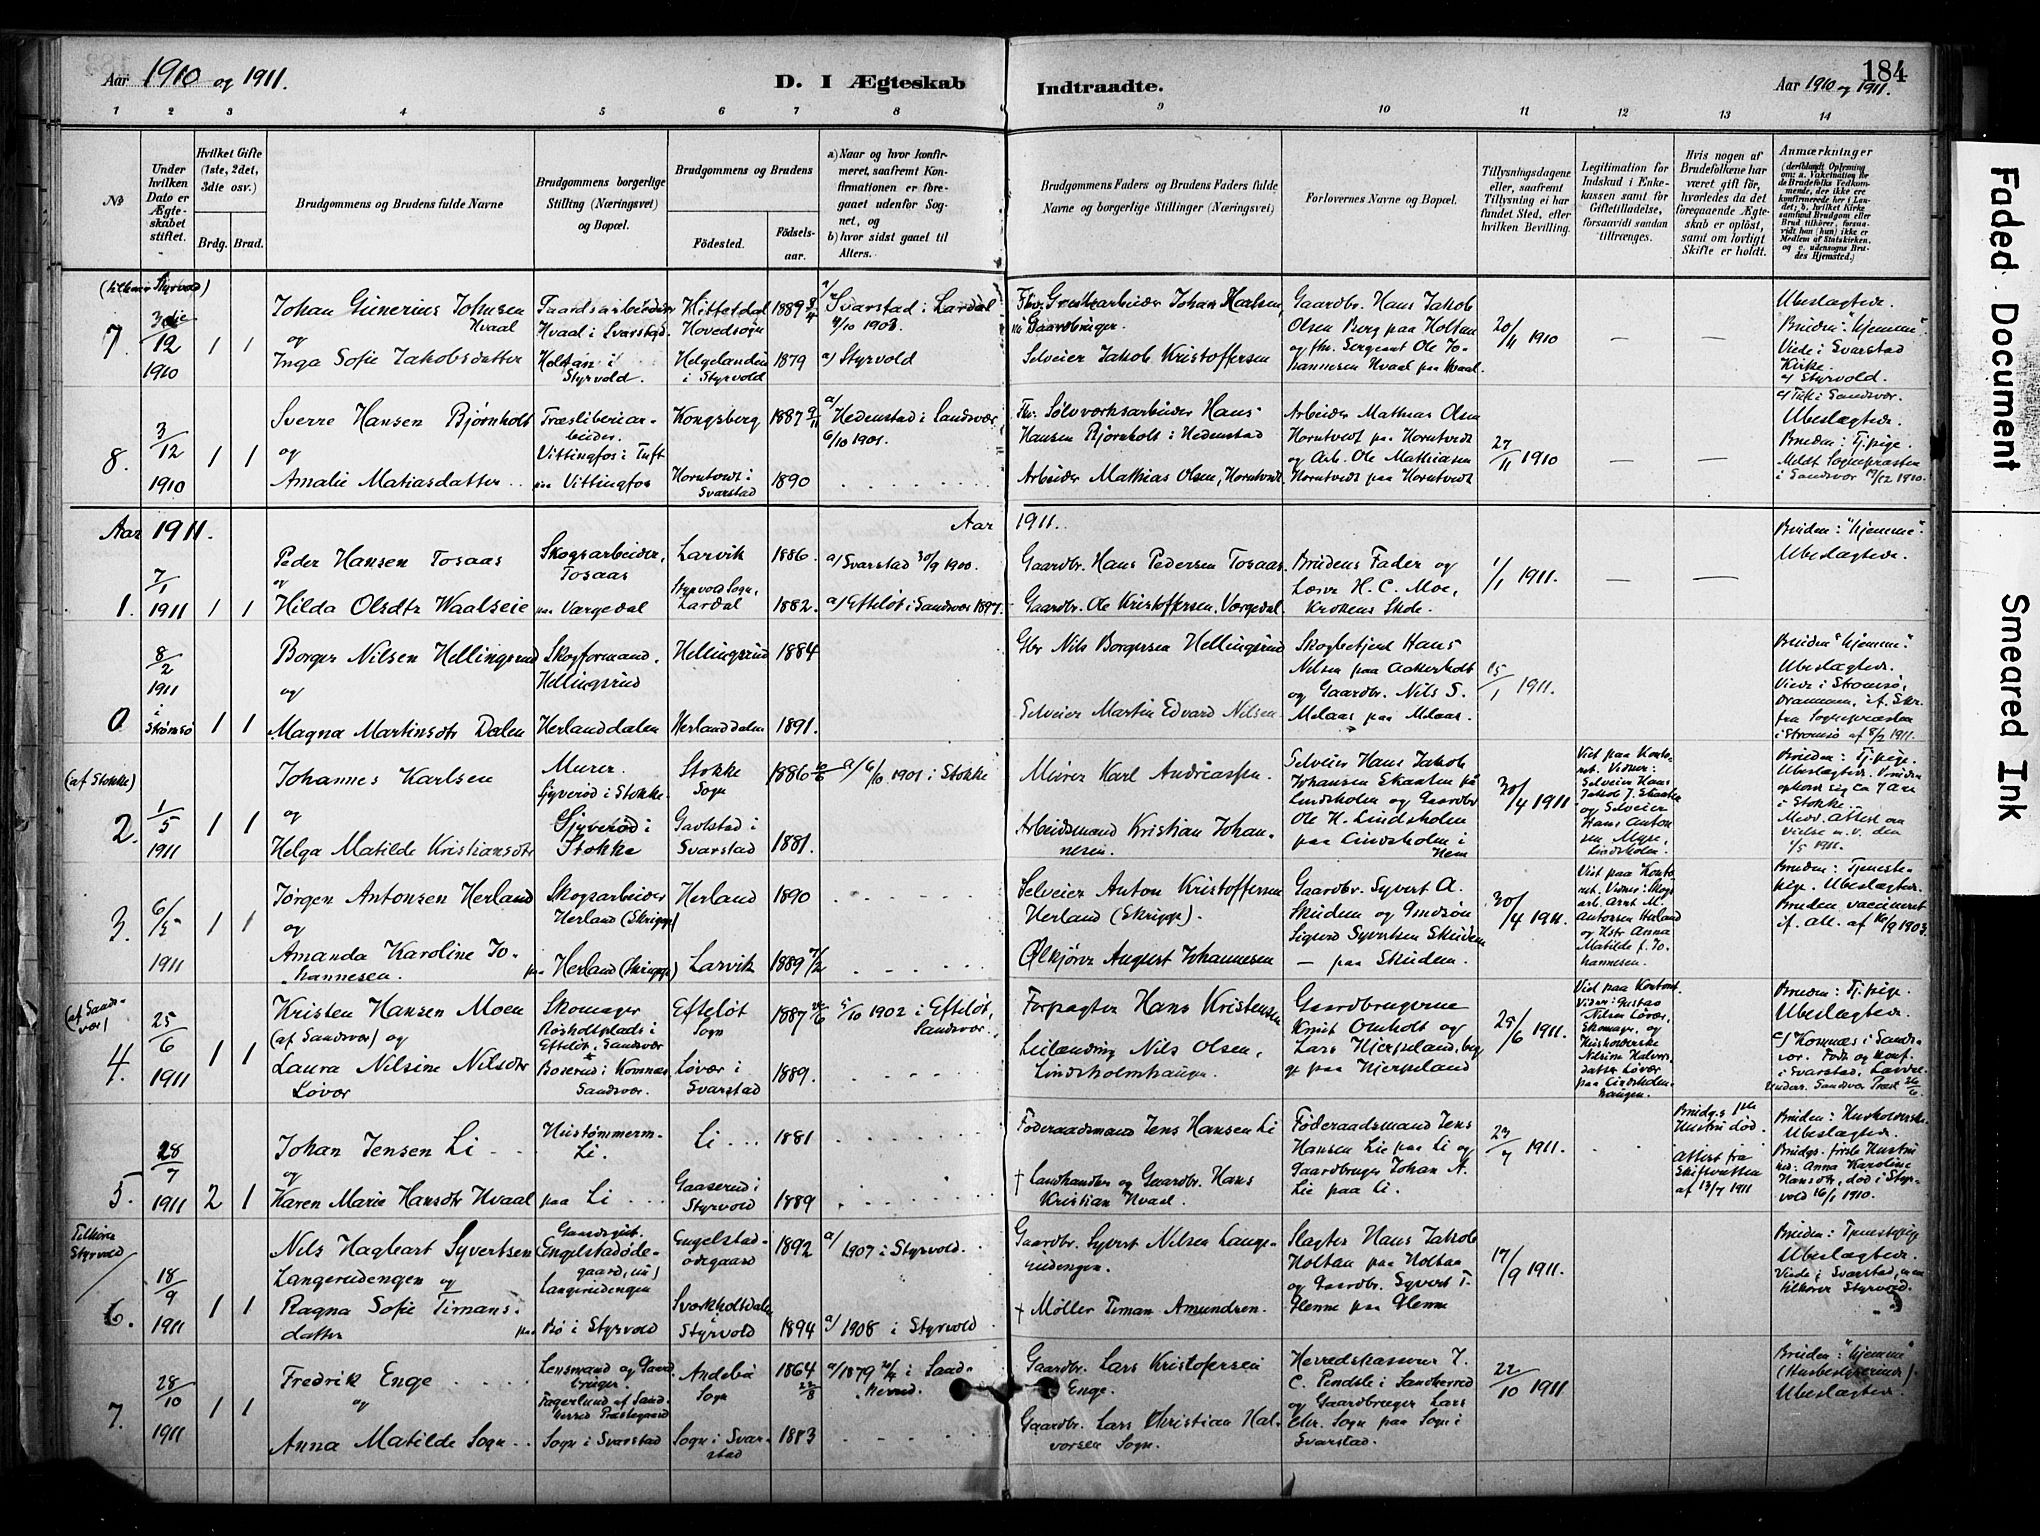 Aar 1910 og 1911.
D. I Ægteskab Indtraadte.
Aar 1910 og 1911.
184
1 2 3 4 5 6 7 8 9 10 11 12 13 14
No
Under hvilken Dato er Ægteskabet stiftet.
Hvilket Gifte (1ste, 2det, 3die osv.)
Brdg. Brud.
Brudgommens og Brudens fulde Navne
Brudgommens borgerlige Stilling (Næringsvei) og Bopæl.
Brudgommens og Brudens
Födested.
Födselsaar.
a) Naar og hvor konfirmeret, saafremt Konfirmationen er foregaaet udenfor Sognet, og
b) hvor sidst gaaet til Alters.
Brudgommens Faders og Brudens Faders fulde Navne og borgerlige Stillinger (Næringsvei)
Forlovernes Navne og Bopæl.
Tillysningsdagene eller, saafremt Tillysning ei har fundet Sted, efter hvilken Bevilling.
Legitimation for Indskud i Enkekassen samt for Giftetilladelse, forsaavidt sandan tiltrænges.
Hvis nogen af Brudefolkene har været gift för, hvorledes da det foregaaende Ægteskab er oplöst, samt om lovligt Skifte er holdt.
Anmærkninger
(tilhører Styrvold)
7.
3die/12 1910
1 1
Johan Gunerius Johnsen Hvaal
og
Inga Sofie Jakobsdatter
Gaardsarbeider
Hvaal i Svarstad.
Holtan i Styrvold.
Hitterdal Hovedsogn
Helgelandeie i Styrvold
1889
1879
a/ Svarstad i Lardal
4/10 1903.
a) Styrvold
Selveier Jakob Kristoffersen
Gaardbr. Hans Jakob
Olsen Berg paa Holtan
og fhv. Sergeant Ole Johannesen Hvaal paa Hvaal.
20/11 1910
— —
Ubeslægtede.
Bruden: "hjemme".
Viede i Svarstad
Kirke.
c/ Styrvold.
8.
3/12 1910
1 1
Sverre Hansen Bjørnholt
og
Amalie Matiasdatter
Træsliberiarbeider.
Vittingfos i Tuft
paa Vittingfos
Kongsberg
Horntvedt i Svarstad
1887 9/11
1890
a/ Hedenstad i Sandsvær
6/10 1901.
Fhv. Sølvverksarbeider Hans
Hansen Bjørnholt i Hedenstad
Arbeider Mathias Olsen, Horntvedt
Arbeider Mathias Olsen
Horntvedt paa Horntvedt
og Arb. Ole Mathiasen
Horntvedt paa Horntvedt
27/11 1910
— —
c/ Tuft i Sandsvær.
Ubeslægtede.
Bruden: Tj.pige.
Meldt Sognepræsten
i Sandsvær 1910.
Aar 1911.
Aar 1911.
1.
7/1 1911
1 1
Peder Hansen Tosaas
og
Hilda Olsdtr Waalseie
Skogsarbeider,
Tosaas
paa Værgedal
Larvik
Styrvold Sogn, Lardal
1886.
1882.
a/ Svarstad 30/9 1900.
a) Efteløt i Sandsvær 1897.
Gaardbr. Hans Pedersen Tosaas.
Gaardbr. Ole Kristoffersen, Værgedal.
Brudens Fader og
Lærer H. C. Moe,
Krokens Skole.
1/1 1911.
— —
Bruden: "hjemme"
Ubeslægtede.
0
8/2 1911 i Strømsø
1 1
Borger Nilsen Hellingsrud
og
Magna Martinsdtr Dalen
Skogformand.
Hellingsrud
Herlanddalen
Hellingsrud
Herlanddalen
1884
1891.
Gbr Nils Borgersen Hellingsrud
Selveier Martin Edvard Nilsen
Skogbetjent Hans
Nilsen paa Aakerholt
og Gaardbr. Nils S.
Melaas paa Melaas.
15/1 1911.
Bruden "hjemme".
Ubeslægtede.
Viede i Strømsø,
Drammen, if. Skr.
fra Sognepræsten
i Strømsø af 8/2 1911.
(af Stokke)
2.
1/5 1911
1 1
Johannes Karlsen
og
Helga Matilde Kristiansdtr
Murer.
Gjyverød i Stokke.
Gjyverød i Stokke
Stokke Sogn
Gavlstad i Svarstad
1886
1881.
a/ 6/10 1901 i Stokke
Murer Karl Andreassen.
Arbeidsmand Kristian Johannesen.
Selveier Hans Jakob
Johansen Skaaten på
Lindsholm og Gaardbr
Ole H. Lindsholm
paa Lindsholm i
Hem
30/4 1911
Viet paa Kontoret. Vidner:
Selveier Hans
Jakob J. Skaaten
og Selveier
Hans Antonsen Myre,
Lindsholm.
Bruden: Tj.pige.
Ubeslægtede. Bruden
opholdt sig ca 7 Aar
i Stokke.
Medd. Attest om
Vielse m. v. den
1/5 1911.
3.
6/5 1911
1 1
Jørgen Antonsen Herland
og
Amanda Karoline Johannesen.
Skogsarbeider
Herland (Skrigge)
paa Herland (Skrigge)
Herland
Larvik
1890
1889 7/2
Selveier Anton Kristoffersen
Herland (Skrigge).
Ølkjører August Johannesen
Gaardbr. Syvert A.
Skuden og Gmdsøn
Sigurd Syvertsen Skuden
— paa Skuden.
30/4 1911.
Viet paa Kontoret. Vidner: Skogsarb. Arnt M.
Antonsen Herland
og Hstr Anna
Matilde f. Johannesen.
Bruden: Tjenestepige. Ubeslægtede.
Bruden vaccineret
if. Att. af 16/9 1903.
(af Sandsvær)
4.
25/6 1911
1 1
Kristen Hansen Moen
(af Sandsvær) og
Laura Nilsine Nilsdtr
Løvær
Skomager
Røsholtplads i
Efteløt, Sandsvær
Boserud i Komnæs
Sandsvær.
Efteløt Sogn
Løvær i Svarstad
1887
1889.
5/10 1902 i Efteløt,
Sandsvær.
Forpagter Hans Kristensen
Leilænding Nils Olsen,
Lindsholmhaugen.
Gaardbrugerne
Knut Omholt og
Lars Hjerpeland, begge paa Hjerpeland
25/6 1911.
Viet paa Kontoret.
Vidner: Gustav
Nilsen Løvær,
Skomager, og
Husholderske
Nilsine Halvorsdatter Løvær
paa Lindsholmhaugen.
Bruden: Tj.pige.
Ubeslægtede.
c/ Komnæs i Sandsvær. Født og konf.
i Svarstad, Lardal.
Underr. Sandsvær Præst
5.
28/7 1911
2 1
Johan Jensen Li
og
Karen Marie Hansdtr Hvaal
Hustømmerm.
Li.
paa Li
Li
Gaaserud i Styrvold
1881
1889
Føderaadsmand Jens Hansen Li
† Landhandler og Gaardbr. Hans
Kristian Hvaal.
Føderaadsmand Jens
Hansen Lie paa Li og
Gaardbruger Johan A.
Lie paa Li.
23/7 1911.
Brudg.s 1ste
Hustru død.
Attest fra
Skifteretten
af 13/7 1911
Bruden: Husholderske.
Ubeslægtede.
Brudgs. første Hustru
hed: Anna Karoline
Hansdtr, død i Styrvold 16/1 1910.
Tilhører Styrvold
6.
18/9 1911
1 1
Nils Hagbart Syvertsen
Langerudengen og
Ragna Sofie Timansdatter
Gaardsgut.
Engelstadødegaard, nu)
Langerudengen
paa Bø i Styrvold
Engelstadødegaard
Sværkholtdalen
Styrvold
1892
1894
a/ 1907 i Styrvold.
a) 1908 i Styrvold
Gaardbr. Syvert Nilsen Langerudengen.
† Møller Timan Amundsen.
Slagter Hans Jakob
Holtan paa Holtan
og Gaardbr. Syvert T.
Glenne paa Glenne
17/9 1911.
Bruden: Tjenestepige
Ubeslægtede.
Viede i Svarstad, men
tilhører Styrvold.
7.
28/10 1911
1 1
Fredrik Enge
og
Anna Matilde Sogn
Lensmand og Gaardbruger.
Fagerlund af Sandherred Præstegaard
Sogn i Svarstad
Andebu Sogn
Sogn i Svarstad
1864 22/8
1883
a/ 1879 i Sandherred.
Gaardbr. Lars Kristofersen
Enge.
Gaardbr. Lars Christian Halvorsen Sogn.
Herredskasserer J.
C. Pendsle i Sandherred
og Gaardbruger Lars
Chr. Sogn paa Sogn i
Svarstad.
22/10 1911
Bruden: "hjemme"
(Husbestyrerinde).
Ubeslægtede.
Faded Document
Smeared Ink